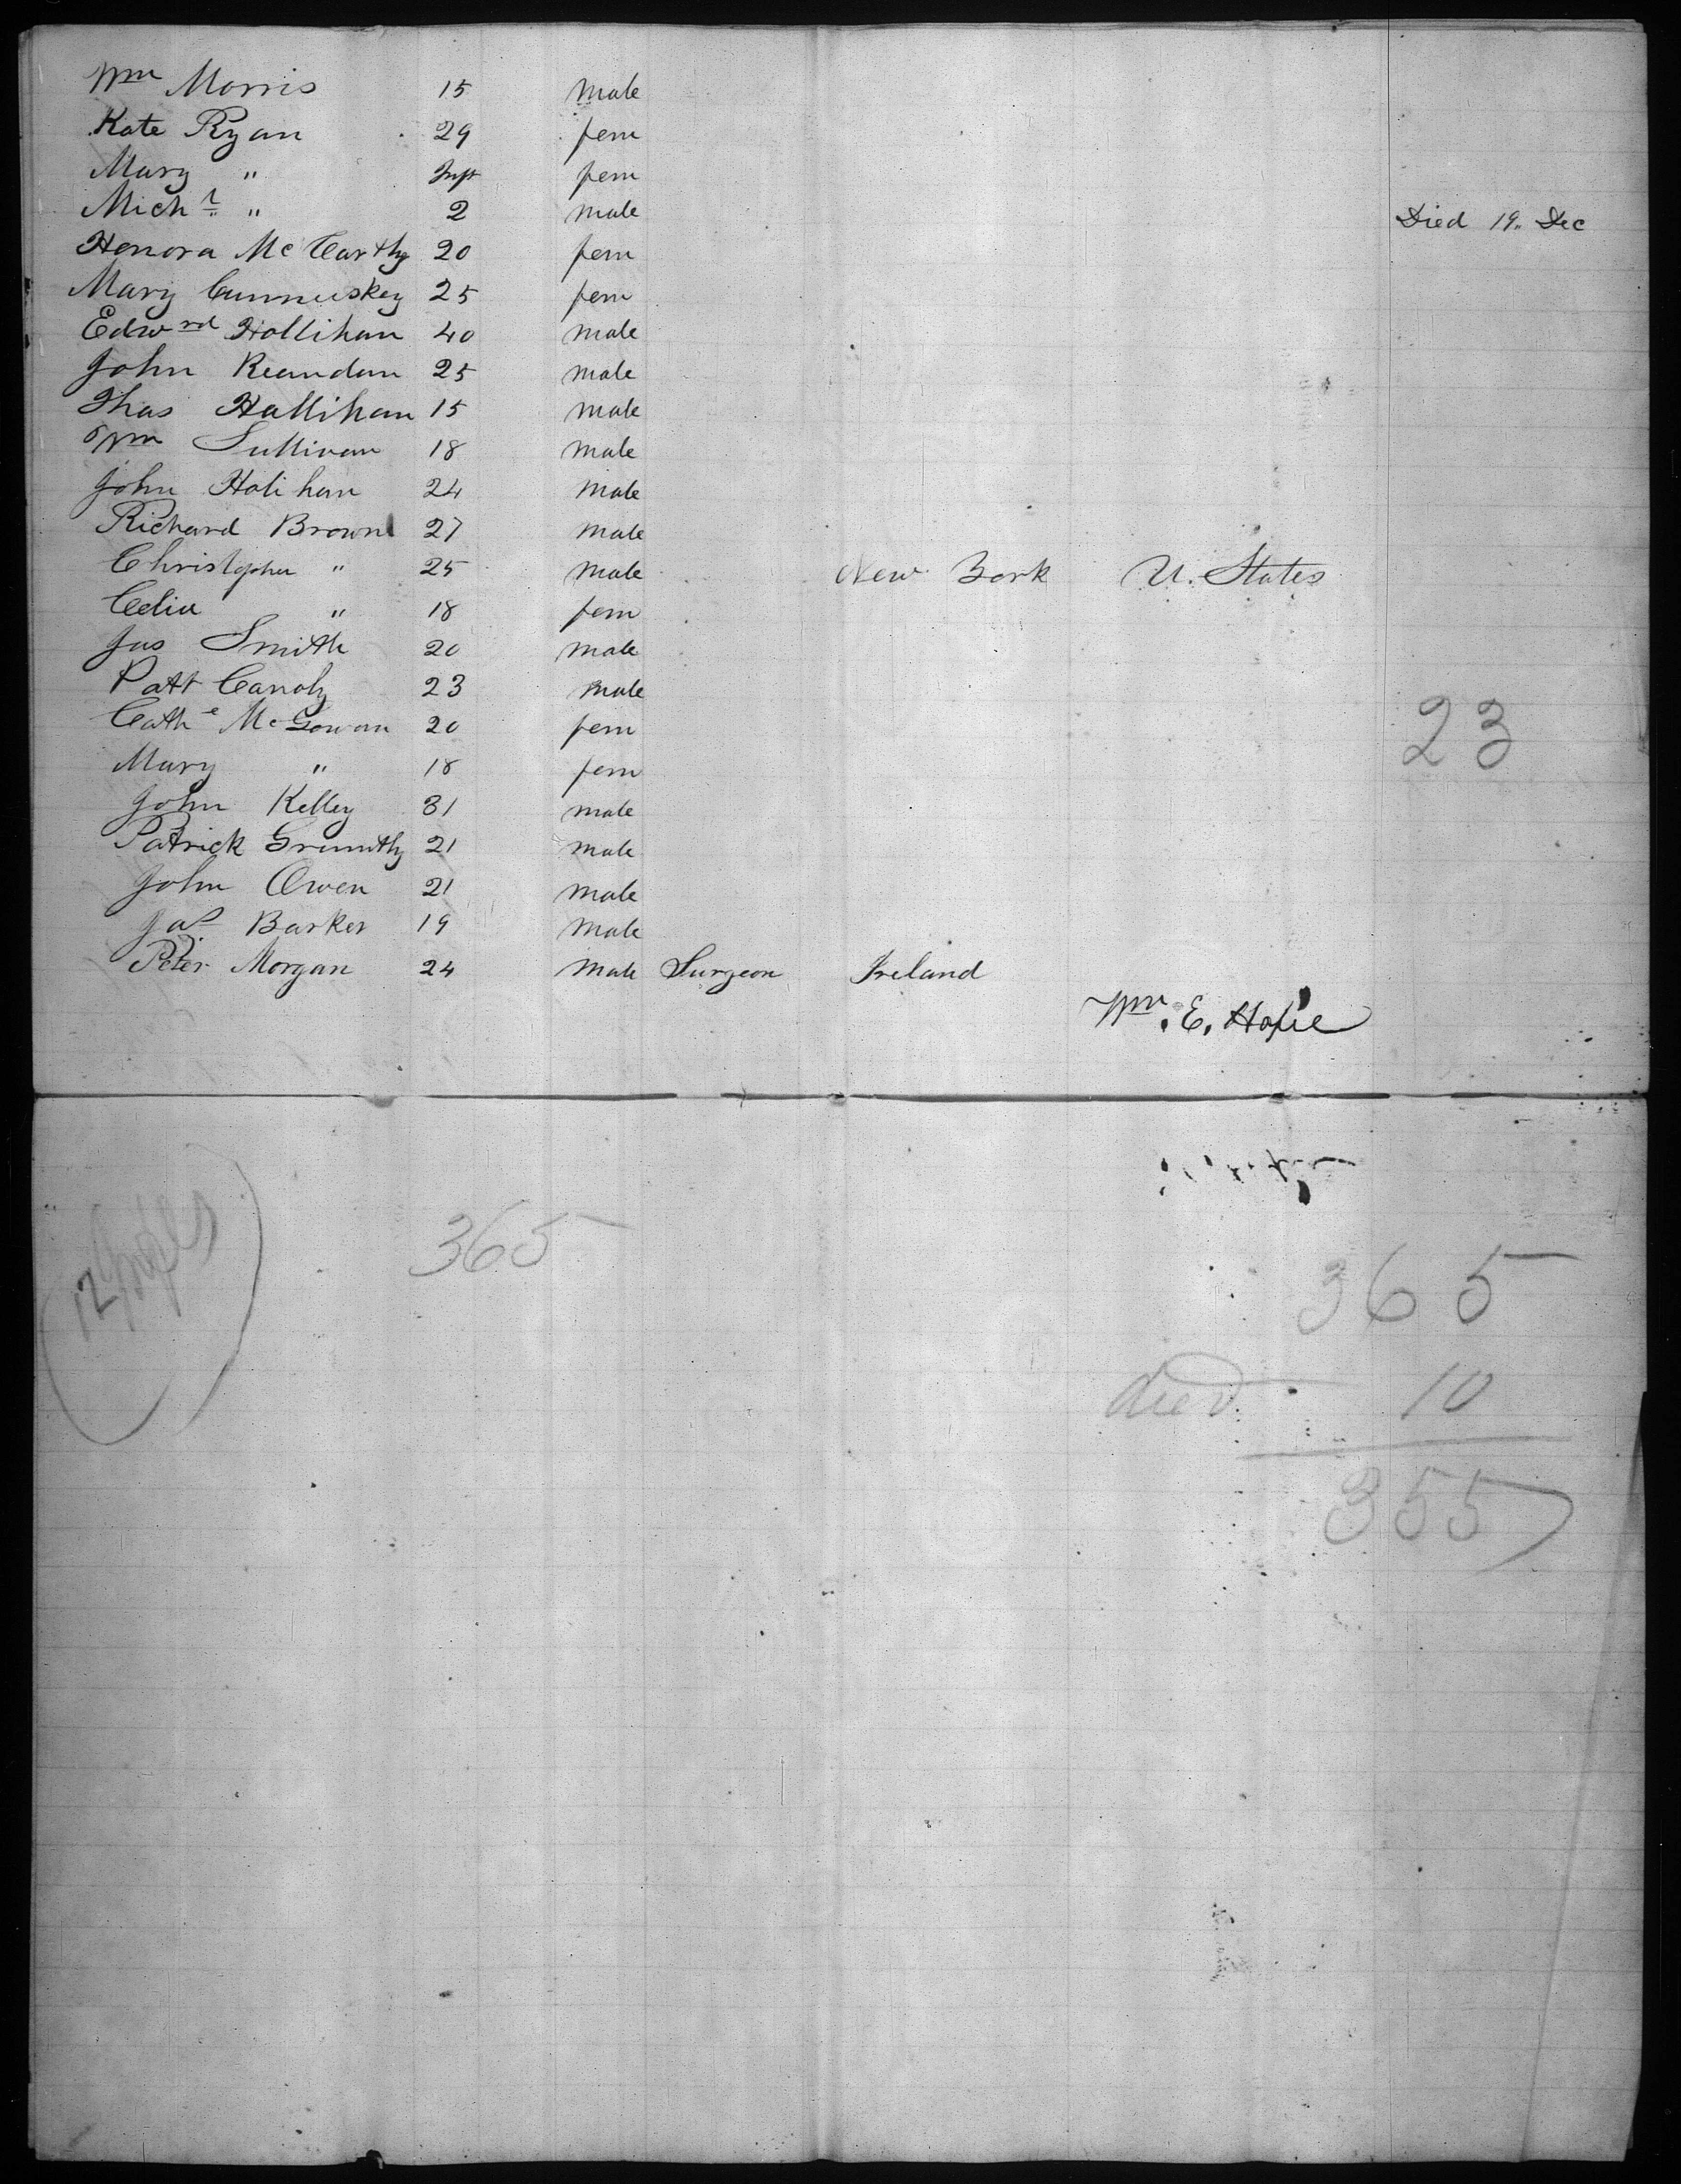 Wm Morris 15 male
Kate Ryan 29 fem
Mary " Inft fem
Michl " 2 male Died 19. Dec
Honora McCarthy 20 fem
Mary 25 fem
Edwrd Hollihan 40 male
John 25 male
Thos Hallihan 15 male
Wm Sullivan 18 male
John Holihan 24 male
Richard Brown 27 male
Christopher " 25 male New York U. States
Celia " 18 fem
Jas Smith 20 male
Patt 23 male
Cathe McGowan 20 fem
23
Mary " 18 fem
John Kelley 31 male
Patrick 21 male
John Owen 21 male
Jas Barker 19 male
Peter Morgan 24 male Surgeon Ireland
Wm. E.
12
365
365
died 10
355